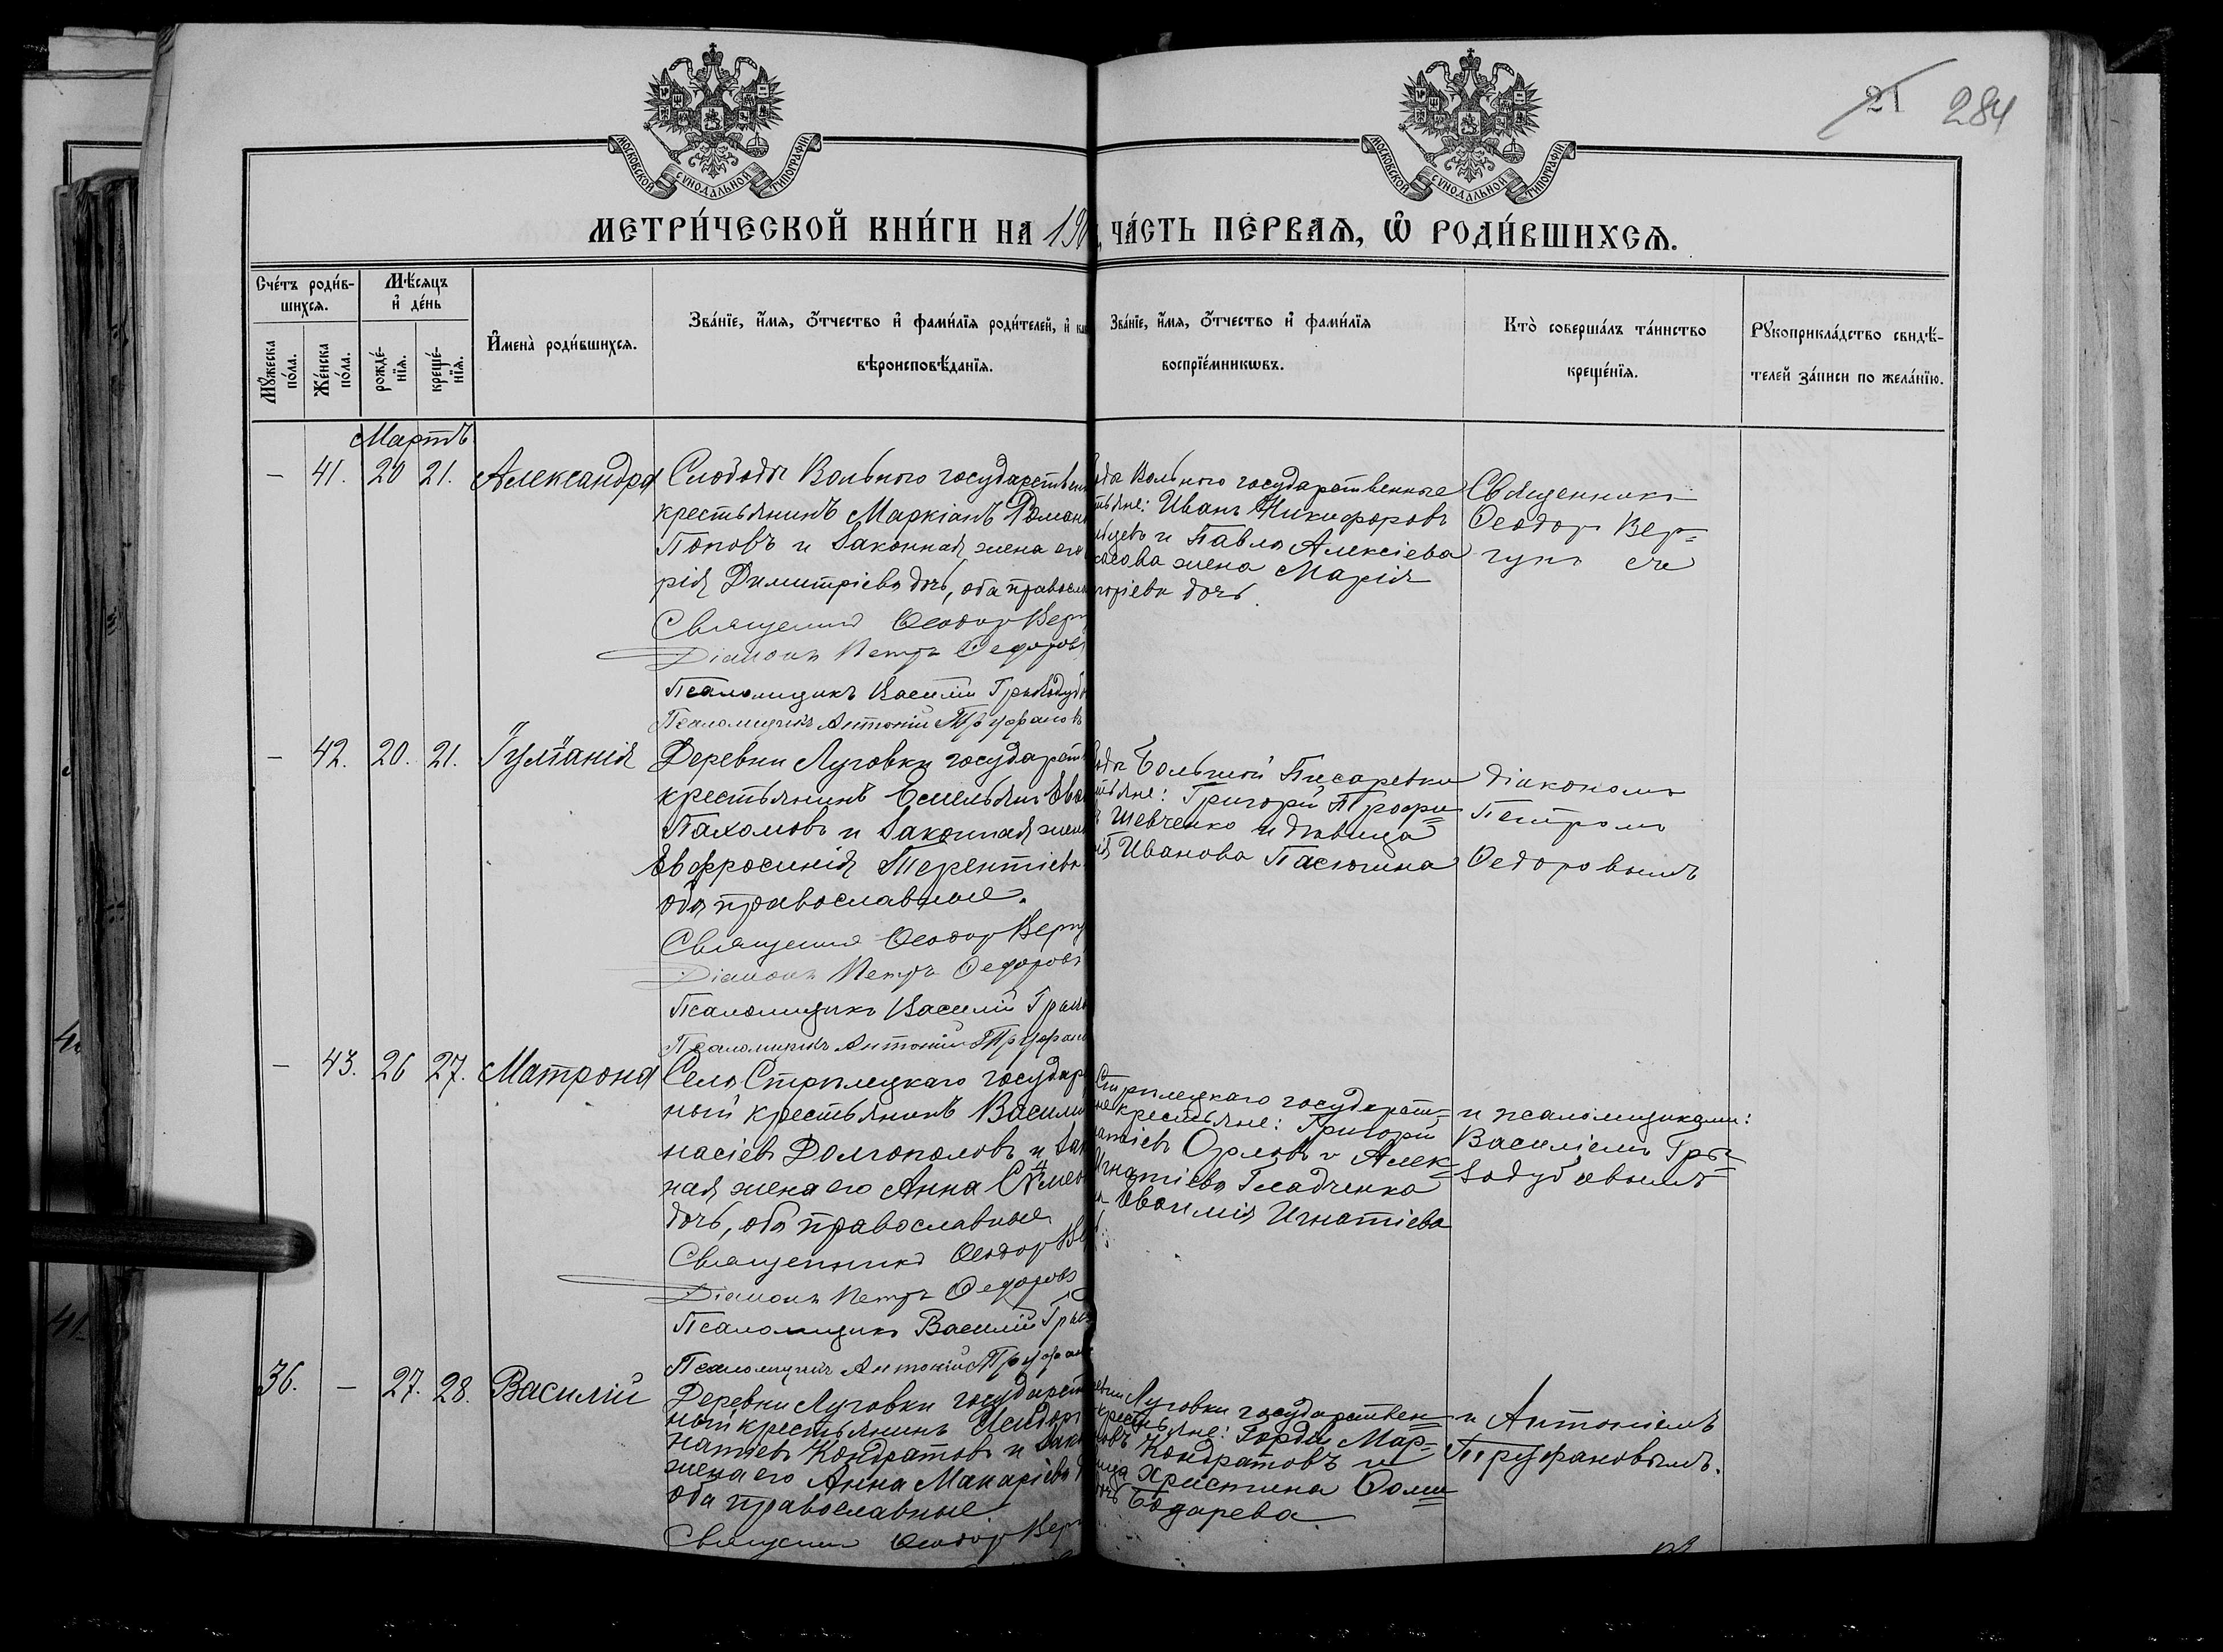 21 284
МОСКОВСКОЙ СѴНОДАЛЬНОЙ ТИПОГРАФІИ
МОСКОВСКОЙ СѴНОДАЛЬНОЙ ТИПОГРАФІИ
МЕТРИ́ЧЕСКОЙ КНИ́ГИ НА 190 ЧА́СТЬ ПЕ́РВАѦ, Ѿ РОДИ́ВШИХСѦ.
Сче́тъ роди́в-
шихсѧ.
Мꙋ́жеска по́ла.
Же́нска по́ла.
Мѣ́сяцъ
и҆ де́нь
рожде́-
нїѧ.
креще́-
нїѧ.
И҆мена̀ роди́вшихсѧ.
Зва́нїе, и҆́мѧ, ѻ҆́тчество и҆ фами́лїѧ роди́телей, и҆
вѣроисповѣ́данїѧ.
Зва́нїе, и҆́мѧ, ѻ҆́тчество и҆ фами́лїѧ
воспрїе́мникѡвъ.
Кто̀ соверша́лъ та́инство
креще́нїѧ.
Рꙋкоприкла́дство свидѣ́-
телей за́писи по жела́нїю.
Мартъ
— 41. 20 21. Александра
Слободы Вольного государствен
крестьянинъ Маркіанъ Роман
Поповъ и законная жена его
рія Димитріева дочь, оба правосл
Священникъ Ѳеодоръ Верг
Діаконъ Петръ Ѳедоровъ
Псаломщикъ Василій Грызодубо
Псаломщикъ Антоній Труфановъ
оды Вольного государственные
тьяне: Иванъ Никифоровъ
и Павла Алексіева
жена Марія
горіева дочь
Священникъ
Ѳеодоръ Вер-
гунъ съ
— 42. 20. 21. Іуліанія
Деревни Луговки государст
крестьянинъ Емельянъ Ева
Пахомовъ и законная жена
Евфросинія Терентіева
оба православные.
Священникъ Ѳеодоръ Верг
Діаконъ Петръ Ѳедоровъ
Псаломщикъ Василій Грыз
Псаломщикъ Антоній Труфано
оды Большой Писаревки
тьяне: Григорій Трофи-
Шевченко и дѣвица
Иванова Пасюгина
діакономъ
Петромъ
Ѳедоровымъ
— 43. 26 27. Матрона
Села Стрѣлецкаго государ
ный крестьянинъ Васили
насіевъ Долгополовъ и зак
ная жена его Анна Сѵмео
дочь, оба православные
Священникъ Ѳеодоръ Ве
Діаконъ Петръ Ѳедоровъ
Псаломщикъ Василій Грыз
Псаломщикъ Антоній Труфан
Стрѣлецкаго государст-
крестьяне: Григорій
натіевъ Орловъ и Алек-
Игнатіева Гладченка
Игнатіева
и псаломщиками:
Василіемъ Гры-
зодубовымъ
36. — 27. 28. Василій
Деревни Луговки государст
ный крестьянинъ Исидоръ
натіевъ Кондратовъ и зак
жена его Анна Макаріева д
оба православные
Священникъ Ѳеодоръ Верг
Луговки государствен-
крестьяне: Гордій Мар-
овъ Кондратовъ и
ица Христина Ѳоми-
дочь Бодарева
и Антоніемъ
Труфановымъ.